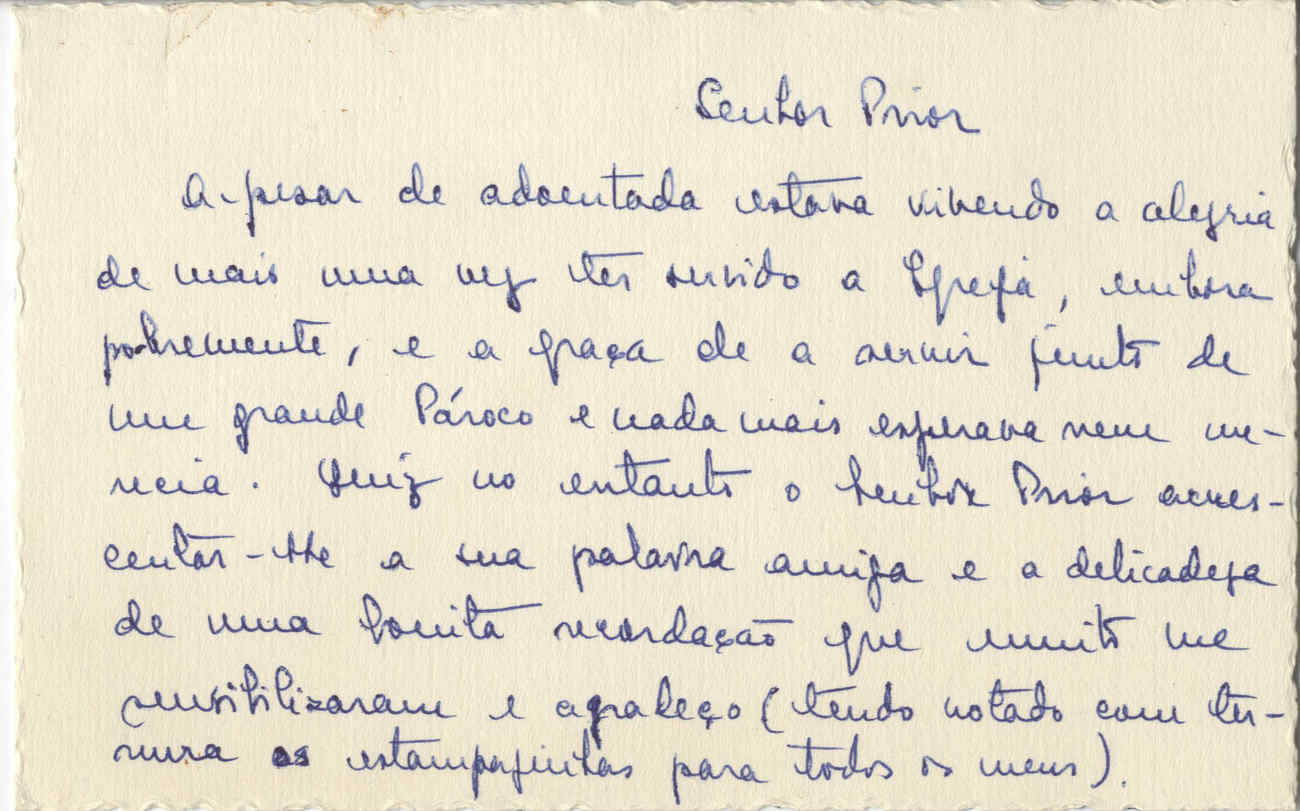 Senhor Prior
A-pesar de adoentada estava vivendo a alegria
de mais uma vez ter servido a Igreja, embora
pobremente, e a graça de a servir junto de
um grande Pároco e nada mais esperava nem me-
recia. Quiz no entanto o Senhor Prior acres-
centar-lhe a sua palavra amiga e a delicadeza
de uma bonita recordação que muito me
sensibilizaram e agradeço (tendo notado com ter-
nura as estampazinhas para todos os meus).